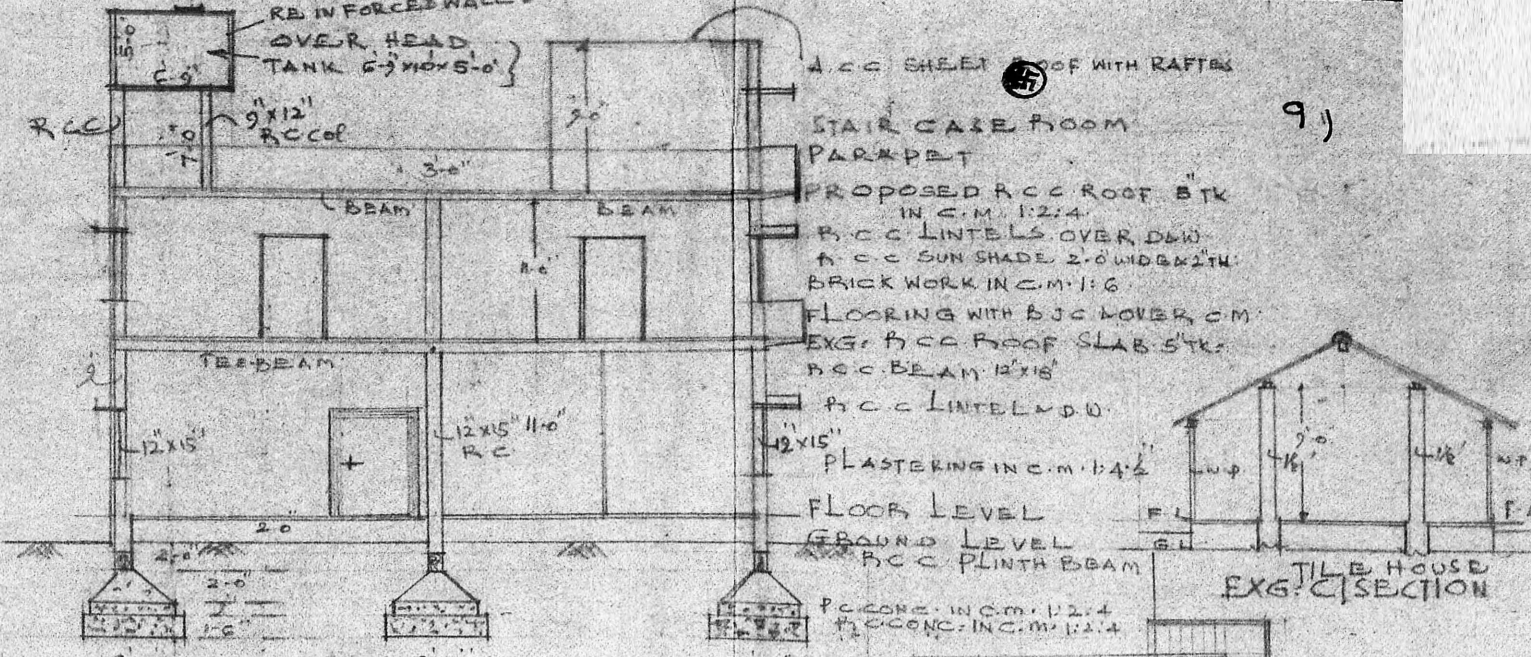 RE IN FORCED WALL
OVER HEAD
TANK 6-9"x10x5'-0"
5'-0"
6-9"
RCC
9"x12"
RC Col
7'-0
3'-0"
9'-0
BEAM
BEAM
11-0"
TEE-BEAM
12"x15"
12"x15" 11-0"
RC
12"x15"
2-0"
2-0"
2-0"
2'
1-6"
A.C.C SHEET ROOF WITH RAFTES
9)
STAIR CASE ROOM
PARAPET
PROPOSED R C C ROOF 5"TK
IN C.M. 1:2:4.
R.C.C LINTELS OVER D&W
R.C.C SUN SHADE 2'-0 WIDE & 2"TH.
BRICK WORK IN C.M. 1:6
FLOORING WITH BJC OVER C.M
EXG. RCC ROOF SLAB 5"TK.
R.C.C. BEAM 12"x18"
R.C.C LINTEL D.W
PLASTERING IN C.M. 1:4.
FLOOR LEVEL
GROUND LEVEL
R.C.C PLINTH BEAM
P.C.CONC. IN C.M. 1:2:4
R.C.CONC. IN C.M. 1:2:4
9'-0"
1½'
1½'
W.P
W.P
F.L
G.L
TILE HOUSE
EXG. C/SECTION